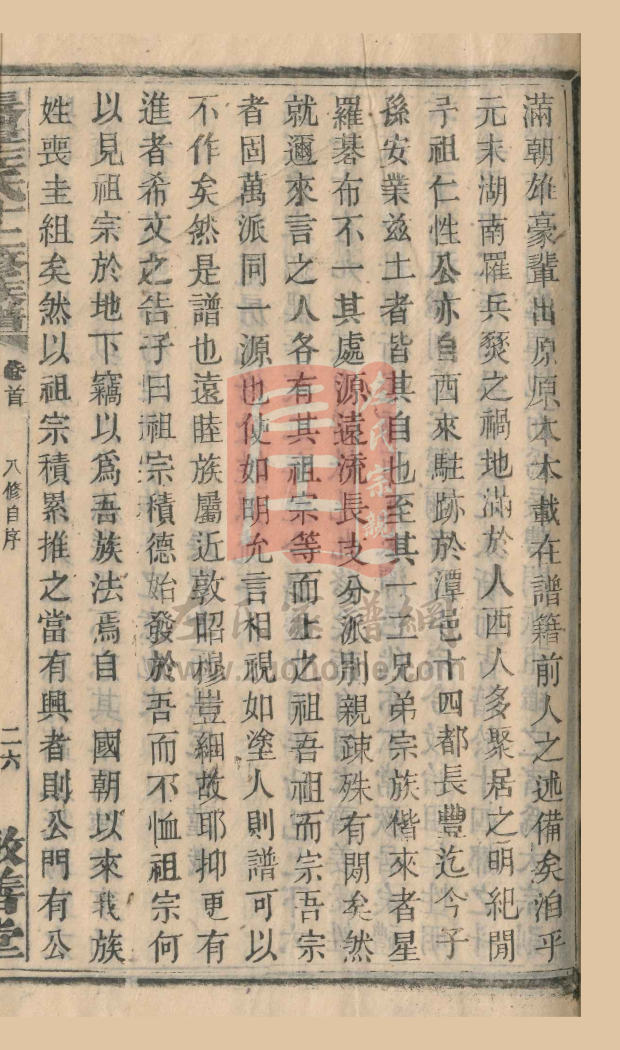 滿朝雄豪輩出原原本本載在譜籍前人之述備矣洎乎
元末湖南罹兵燹之禍地滿於人西人多聚居之明紀閒
予祖仁性公亦自西來駐跡於潭邑十四都長豐迄今子
孫安業兹土者皆其自也至其一二兄弟宗族偕來者星
羅碁布不一其處源遠流長支分派別親疎殊有閒矣然
就邇來言之人各有其祖宗等而上之祖吾祖而宗吾宗
者固萬派同一源也使如明允言相視如塗人則譜可以
不作矣然是譜也遠睦族屬近敦昭穆豈細故耶抑更有
進者希文之告子曰祖宗積德始發於吾而不恤祖宗何
以見祖宗於地下竊以爲吾族法焉自 國朝以來我族
姓喪圭組矣然以祖宗積累推之當有興者則公門有公
氏十二修族譜 卷首 八修自序 二六 敦善堂
www.luohome.com